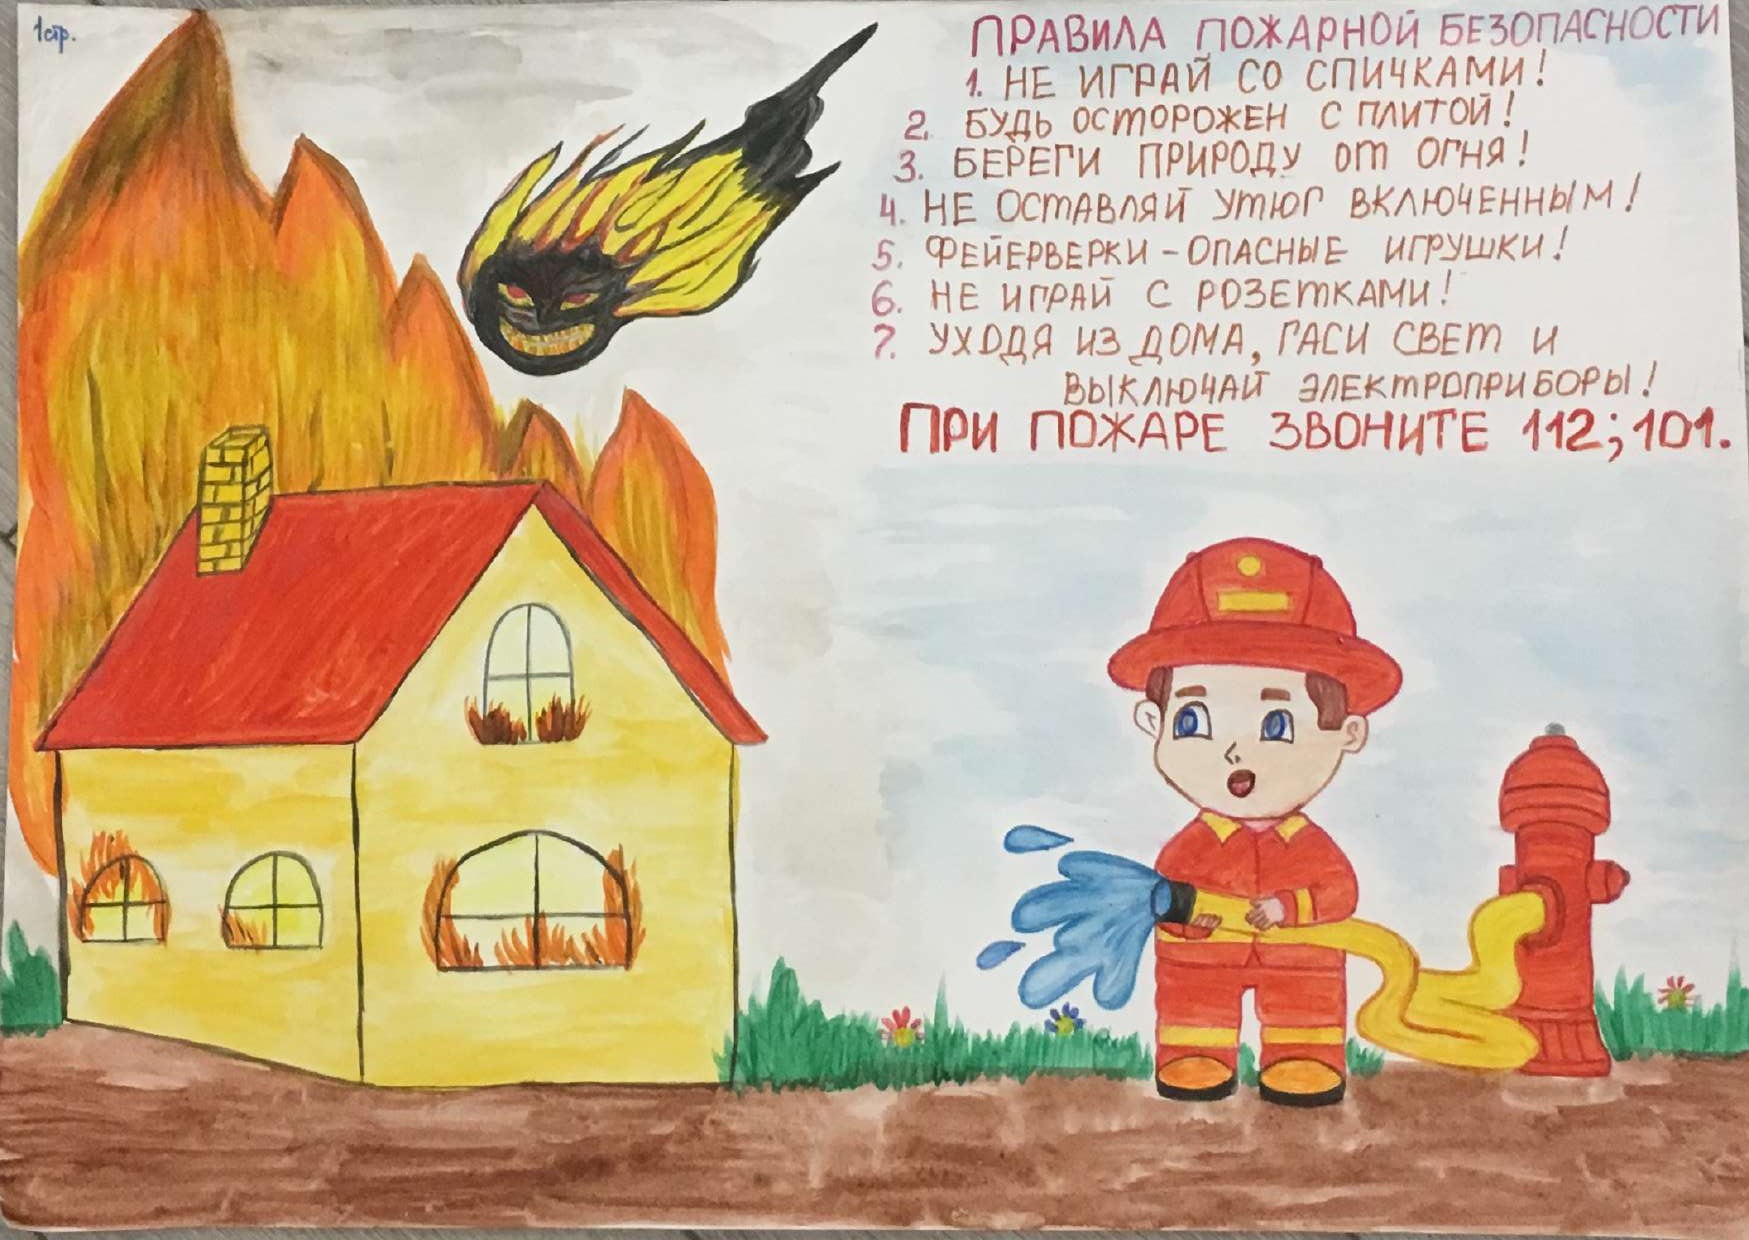 1стр.
ПРАВИЛА ПОЖАРНОЙ БЕЗОПАСНОСТИ
1. НЕ ИГРАЙ СО СПИЧКАМИ!
2. БУДЬ ОСТОРОЖЕН С ПЛИТОЙ!
3. БЕРЕГИ ПРИРОДУ ОТ ОГНЯ!
4. НЕ ОСТАВЛЯЙ УТЮГ ВКЛЮЧЕННЫМ!
5. ФЕЙЕРВЕРКИ - ОПАСНЫЕ ИГРУШКИ!
6. НЕ ИГРАЙ С РОЗЕТКАМИ!
7. УХОДЯ ИЗ ДОМА, ГАСИ СВЕТ И
ВЫКЛЮЧАЙ ЭЛЕКТРОПРИБОРЫ!
ПРИ ПОЖАРЕ ЗВОНИТЕ 112; 101.